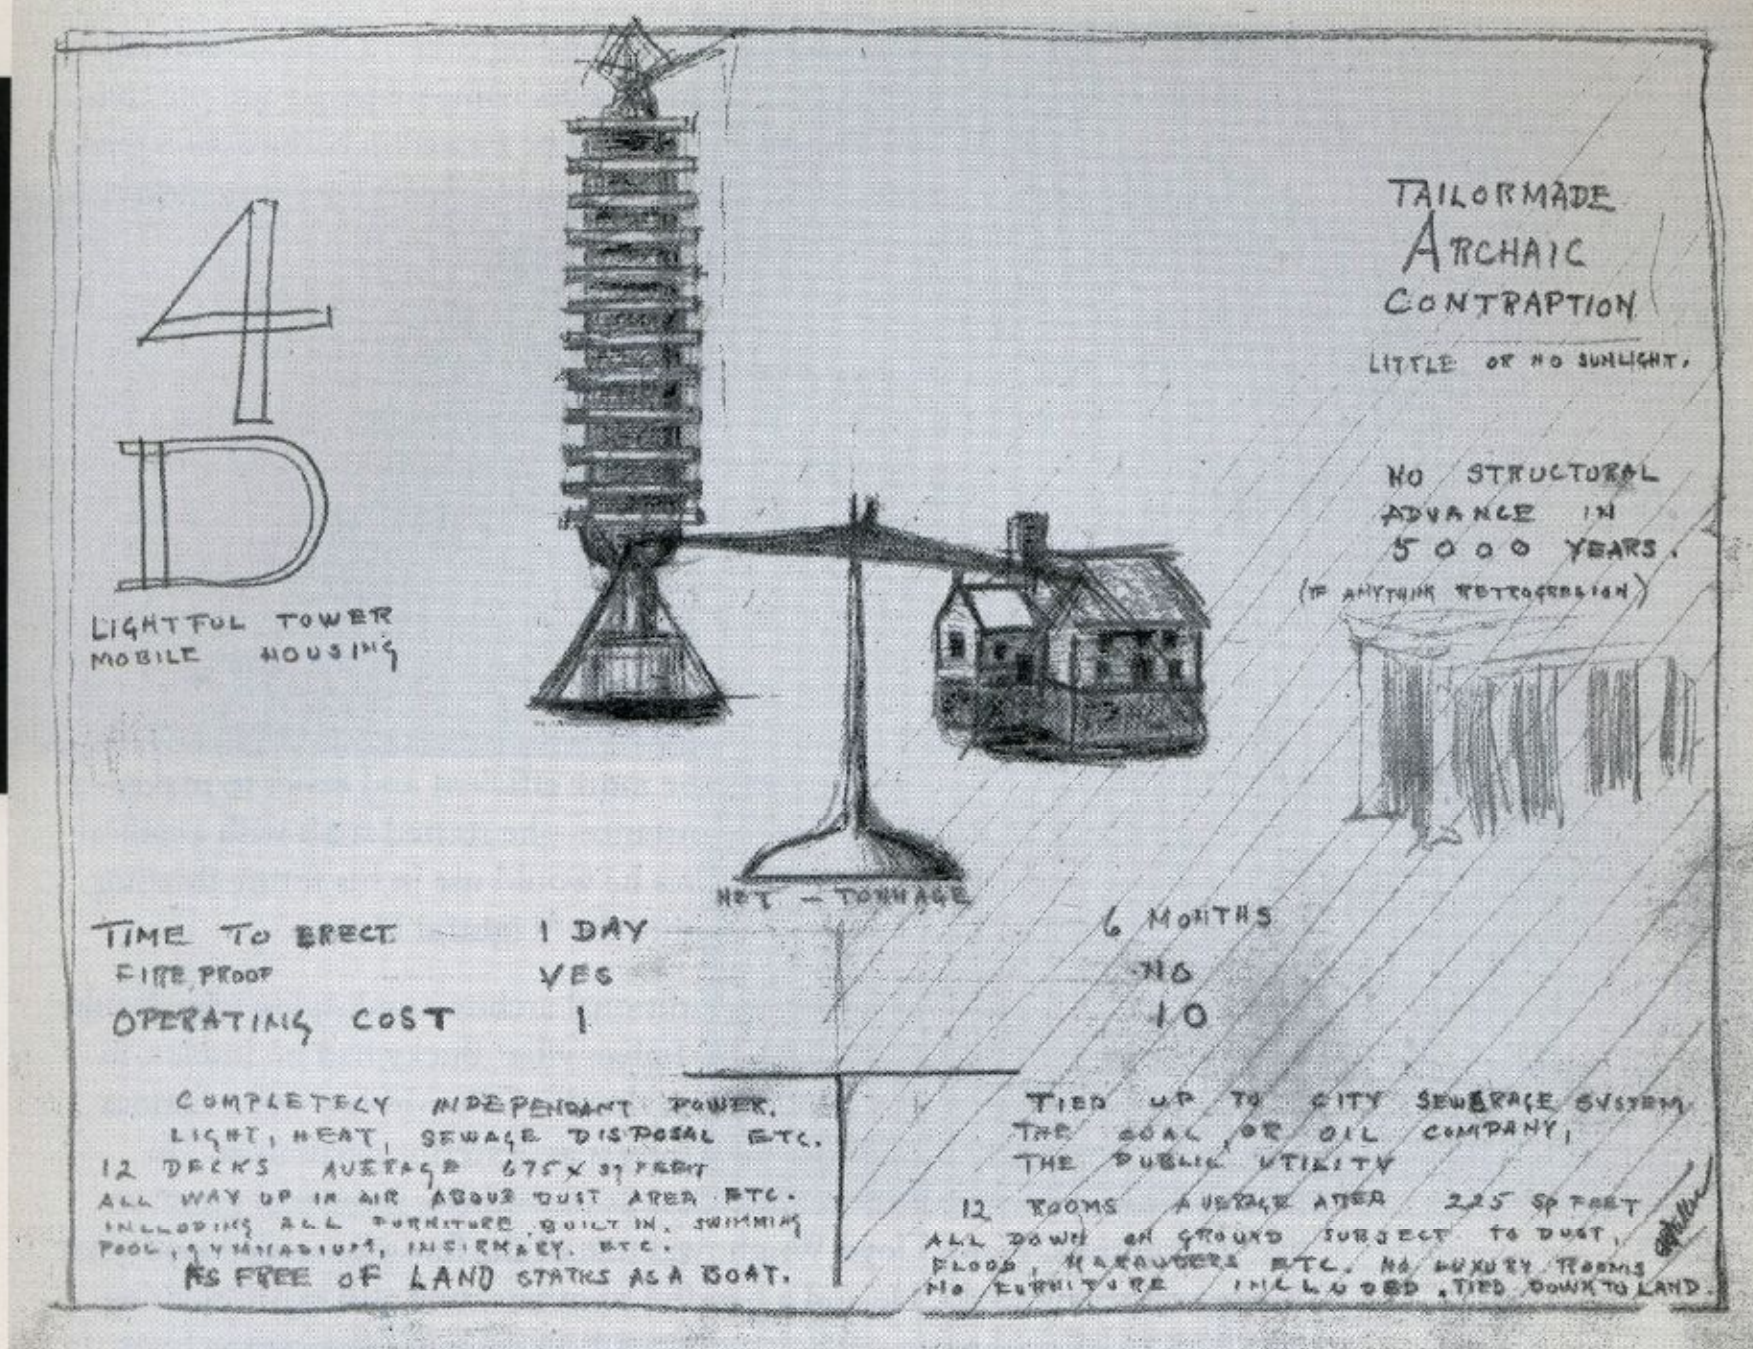 4
D
LIGHTFUL TOWER
MOBILE HOUSING
TAILORMADE
ARCHAIC
CONTRAPTION
LITTLE OR NO SUNLIGHT.
NO STRUCTURAL
ADVANCE IN
5000 YEARS.
(IF ANYTHING RETROGRESION)
NET - TONNAGE
TIME TO ERECT 1 DAY 6 MONTHS
FIRE PROOF YES NO
OPERATING COST 1 10
COMPLETELY INDEPENDANT POWER,
LIGHT, HEAT, SEWAGE DISPOSAL ETC.
12 DECKS AVERAGE 675 FEET
ALL WAY UP IN AIR ABOVE DUST AREA ETC.
INCLUDING ALL FURNITURE BUILT IN. SWIMMING
POOL, GYMNASIUM, INFIRMARY. ETC.
AS FREE OF LAND AS A BOAT.
TIED UP TO CITY SEWERAGE SYSTEM
THE COAL OR OIL COMPANY,
THE PUBLIC UTILITY
12 ROOMS AVERAGE AREA 225 SQ FEET
ALL DOWN ON GROUND SUBJECT TO DUST,
FLOOD, MARAUDERS ETC. NO LUXURY ROOMS
NO FURNITURE INCLUDED. TIED DOWN TO LAND.